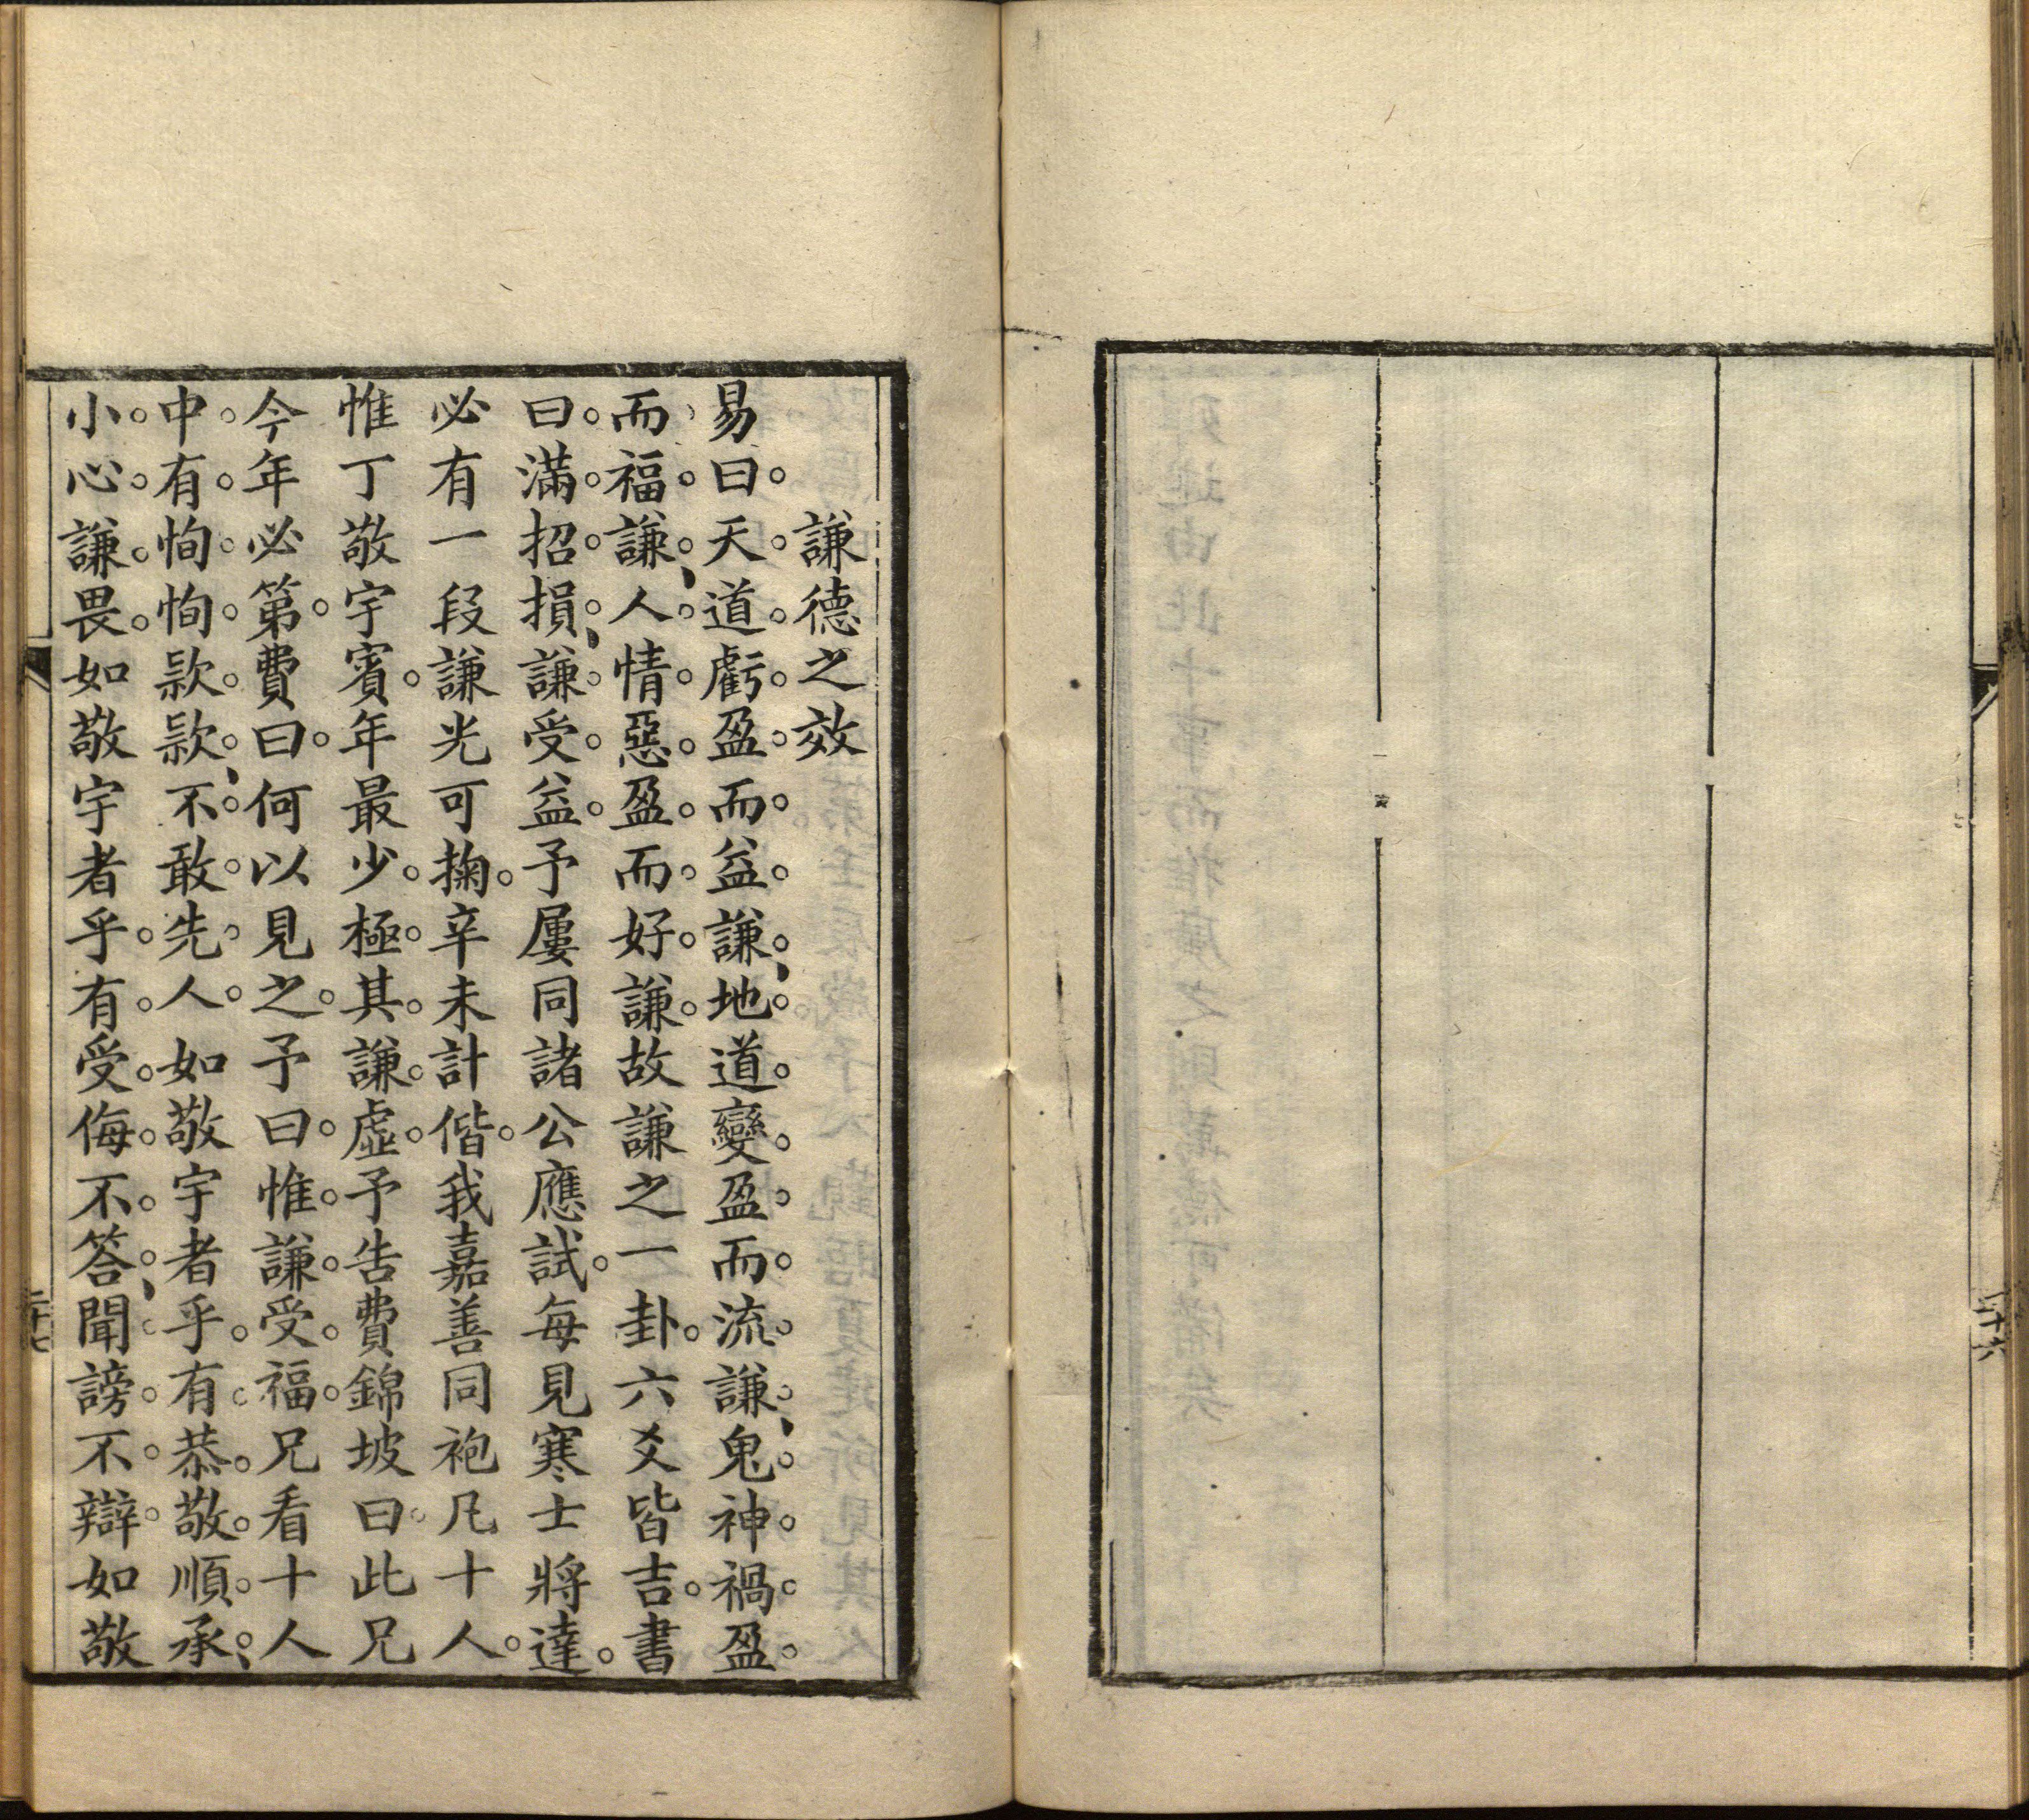 謙德之效
易曰。天道虧盈而益謙、地道變盈而流謙、鬼神禍盈
而福謙、人情惡盈而好謙。故謙之一卦。六爻皆吉。書
曰。滿招損、謙受益。予屢同諸公應試。每見寒士將達。
必有一段謙光可掬。辛未計偕。我嘉善同袍凡十人。
惟丁敬宇賓。年最少。極其謙虛。予告費錦坡曰。此兄
今年必第。費曰。何以見之。予曰。惟謙受福。兄看十人
中。有恂恂款款、不敢先人。如敬宇者乎。有恭敬順承、
小心謙畏。如敬宇者乎。有受侮不答、聞謗不辯。如敬
二十七
二十六